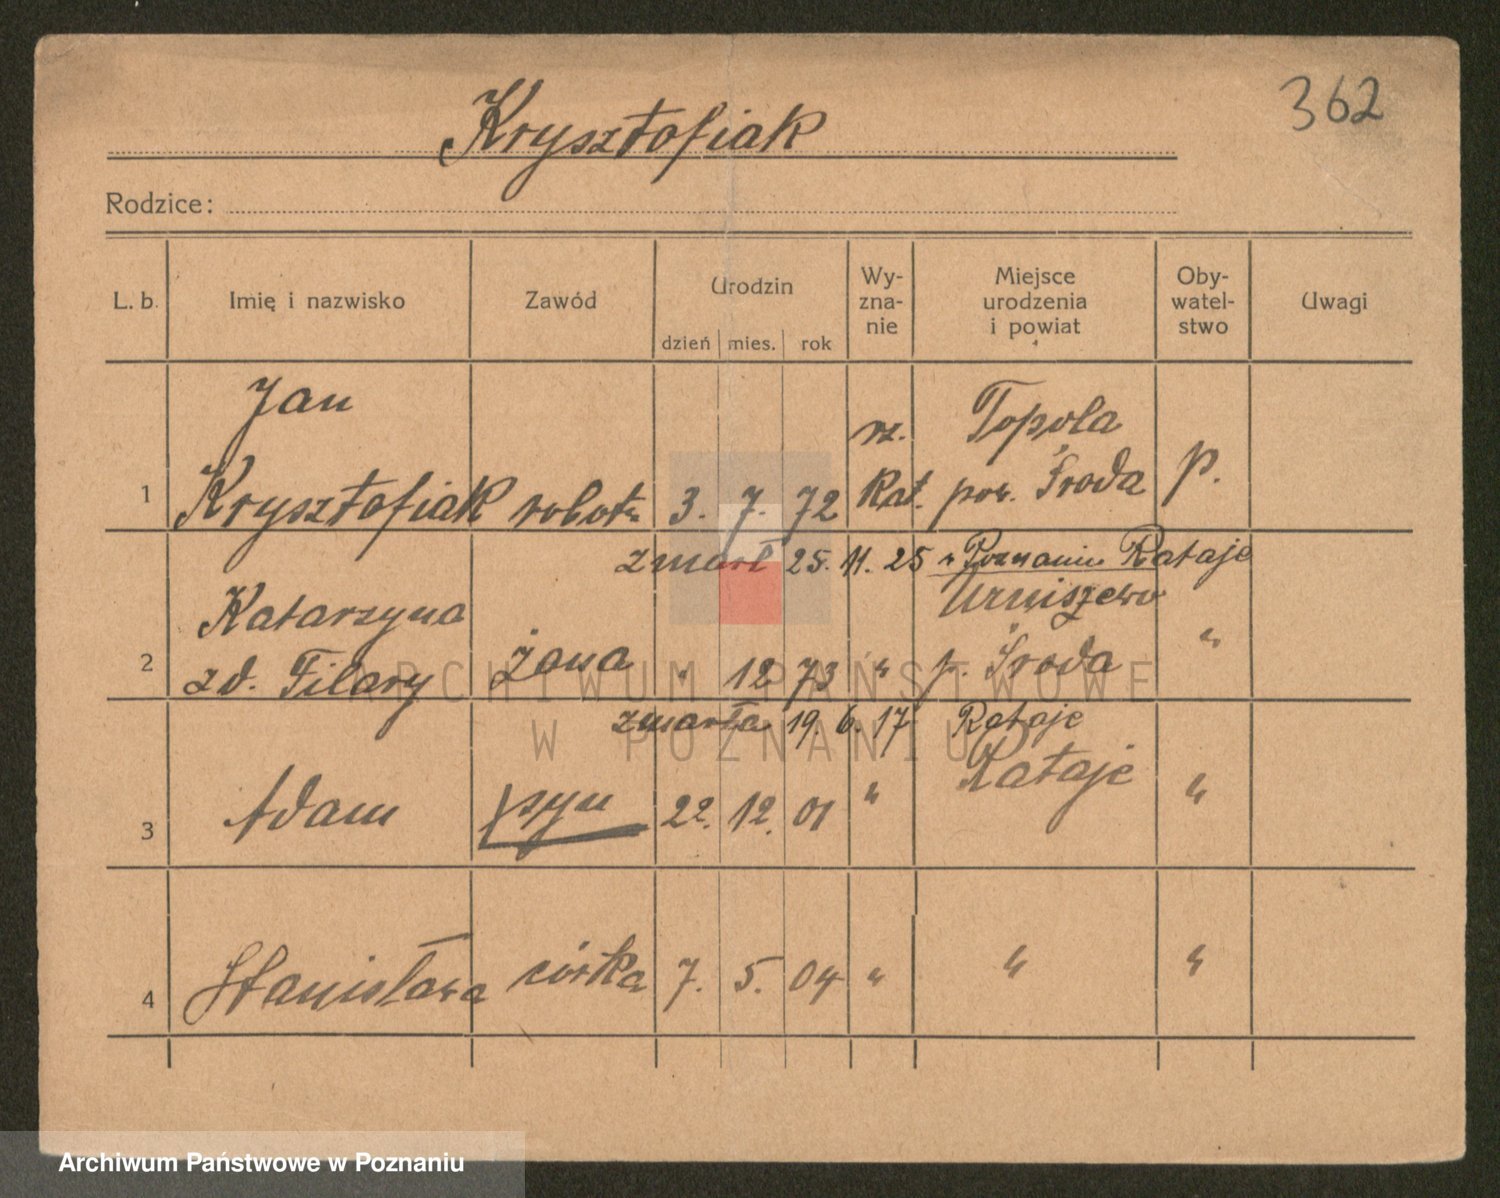 362
Krysztofiak
Rodzice:
L. b. Imię i nazwisko Zawód Urodzin Wy-zna-nie Miejsce urodzenia i powiat Oby-watel-stwo Uwagi
dzień mies. rok
Jan
rz. Topola
1 Krysztofiak robotn. 3. 7. 72 Kat. pow. Środa p.
zmarł 25. 11. 25 w Poznaniu Rataje
Katarzyna
2 zd. Filary żona " 12 73 " p. Środa "
zmarła 19. 6. 17 Rataje
Rataje
3 Adam syn 22. 12. 01 " "
4 Stanisława córka 7. 5. 04 " " "
ARCHIWUM PAŃSTWOWE
W POZNANIU
Archiwum Państwowe w Poznaniu